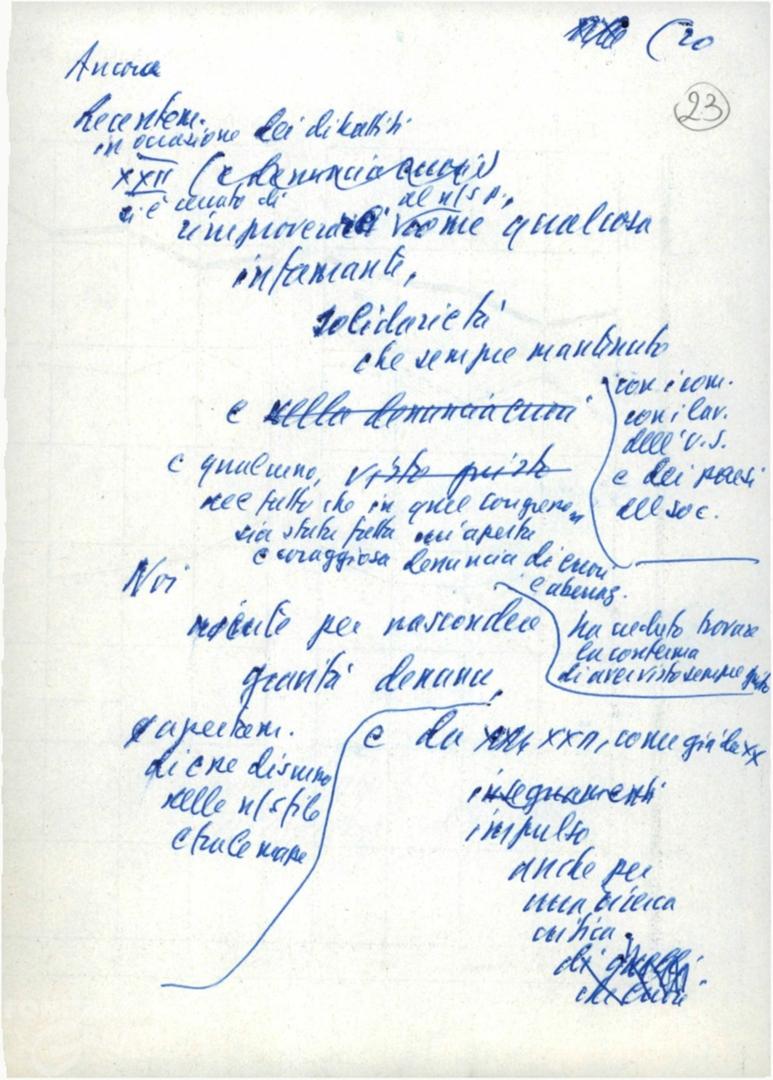 (20
23
Ancora
Recentem.
in occasione dei dibattiti
XXII (e denuncia errori)
si è cercato di
al n/s p.,
rimproverare come qualcosa
infamante,
solidarietà
che sempre mantenuto
con i com.
con i lav.
dell'U.S.
e dei paesi
del soc.
e nella denuncia errori
e qualcuno, visto giusto
nel fatto che in quel congresso
sia stata fatta un'aperta
e coraggiosa denuncia di errori
e aberraz.
ha creduto trovare
la conferma
di aver visto sempre giusto
Noi
niente per nascondere
gravità denunc,
apertam.
di che discusso
nelle n/s file
e tra le masse
e da XXII, come già da XX
insegnamenti
impulso
anche per
una ricerca
critica
di quelli
che errori